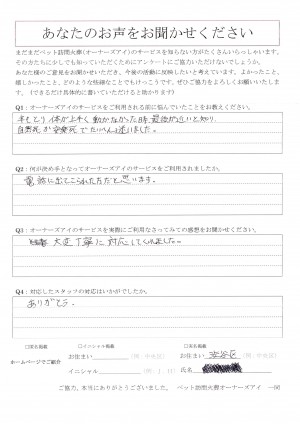 あなたのお声をお聞かせください
まだまだペット訪問火葬(オーナーズアイ)のサービスを知らない方がたくさんいらっしゃいます。
その方たちに少しでも知っていただくためにアンケートにご協力いただけないでしょうか。
あなた様のご意見をお聞かせいただき、今後の活動に反映したいと考えています。よかったこと、
嬉しかったこと、どのような些細なことでもけっこうです。ぜひご協力をよろしくお願いいたします。(できるだけ具体的に書いていただけると助かります)
Q1:オーナーズアイのサービスをご利用される前に悩んでいたことをお教えください。
年をとり 体が上手く動かなかった時、最後が近いと知り、
自然死か安楽死でたいへん迷いました。
Q2:何が決め手となってオーナーズアイのサービスをご利用されましたか。
電話に出てこられた方だと思います。
Q3:オーナーズアイのサービスを実際にご利用なさってみての感想をお聞かせください。
大変丁寧に対応してくれました。
Q4:対応したスタッフの対応はいかがでしたか。
ありがとう。
□実名掲載 □イニシャル掲載 □実名掲載
ホームページでご紹介
お住まい (例:中央区) お住まい 渋谷区
イニシャル (例:I・H) 氏名
ご協力、本当にありがとうございました。 ペット訪問火葬オーナーズアイ